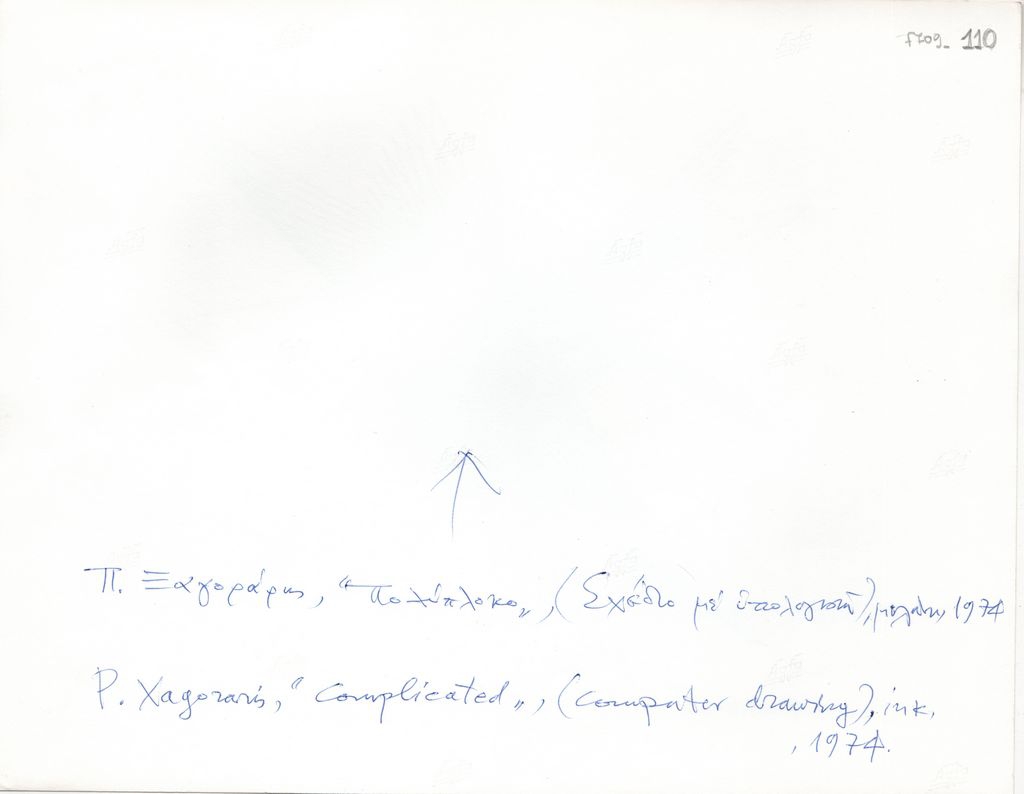 110
Π. Ξαγοράρης, "Πολύπλοκο„, (Σχέδιο μέ ὑπολογιστή), μελάνι, 1974
P. Xagoraris, "complicated„, (computer drawing), ink.
, 1974.